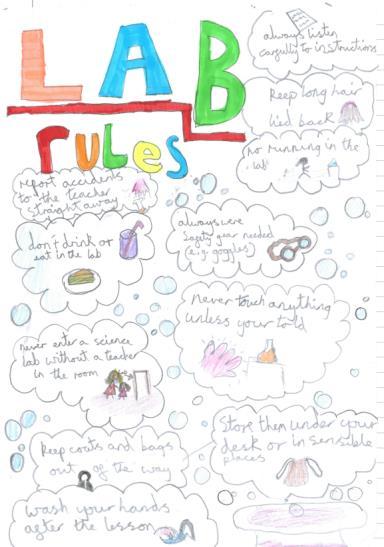 LAB
rules
always listen
carefully to instructions
Keep long hair
tied back
no running in the
lab
report accidents
to the teacher
straight away
don't drink or
eat in the lab
always were
safety gear needed
(e.g. goggles)
never touch anything
unless your told
never enter a science
lab without a teacher
in the room
Keep coats and bags
out of the way
Store them under your
desk or in sensible
places
wash your hands
after the lesson